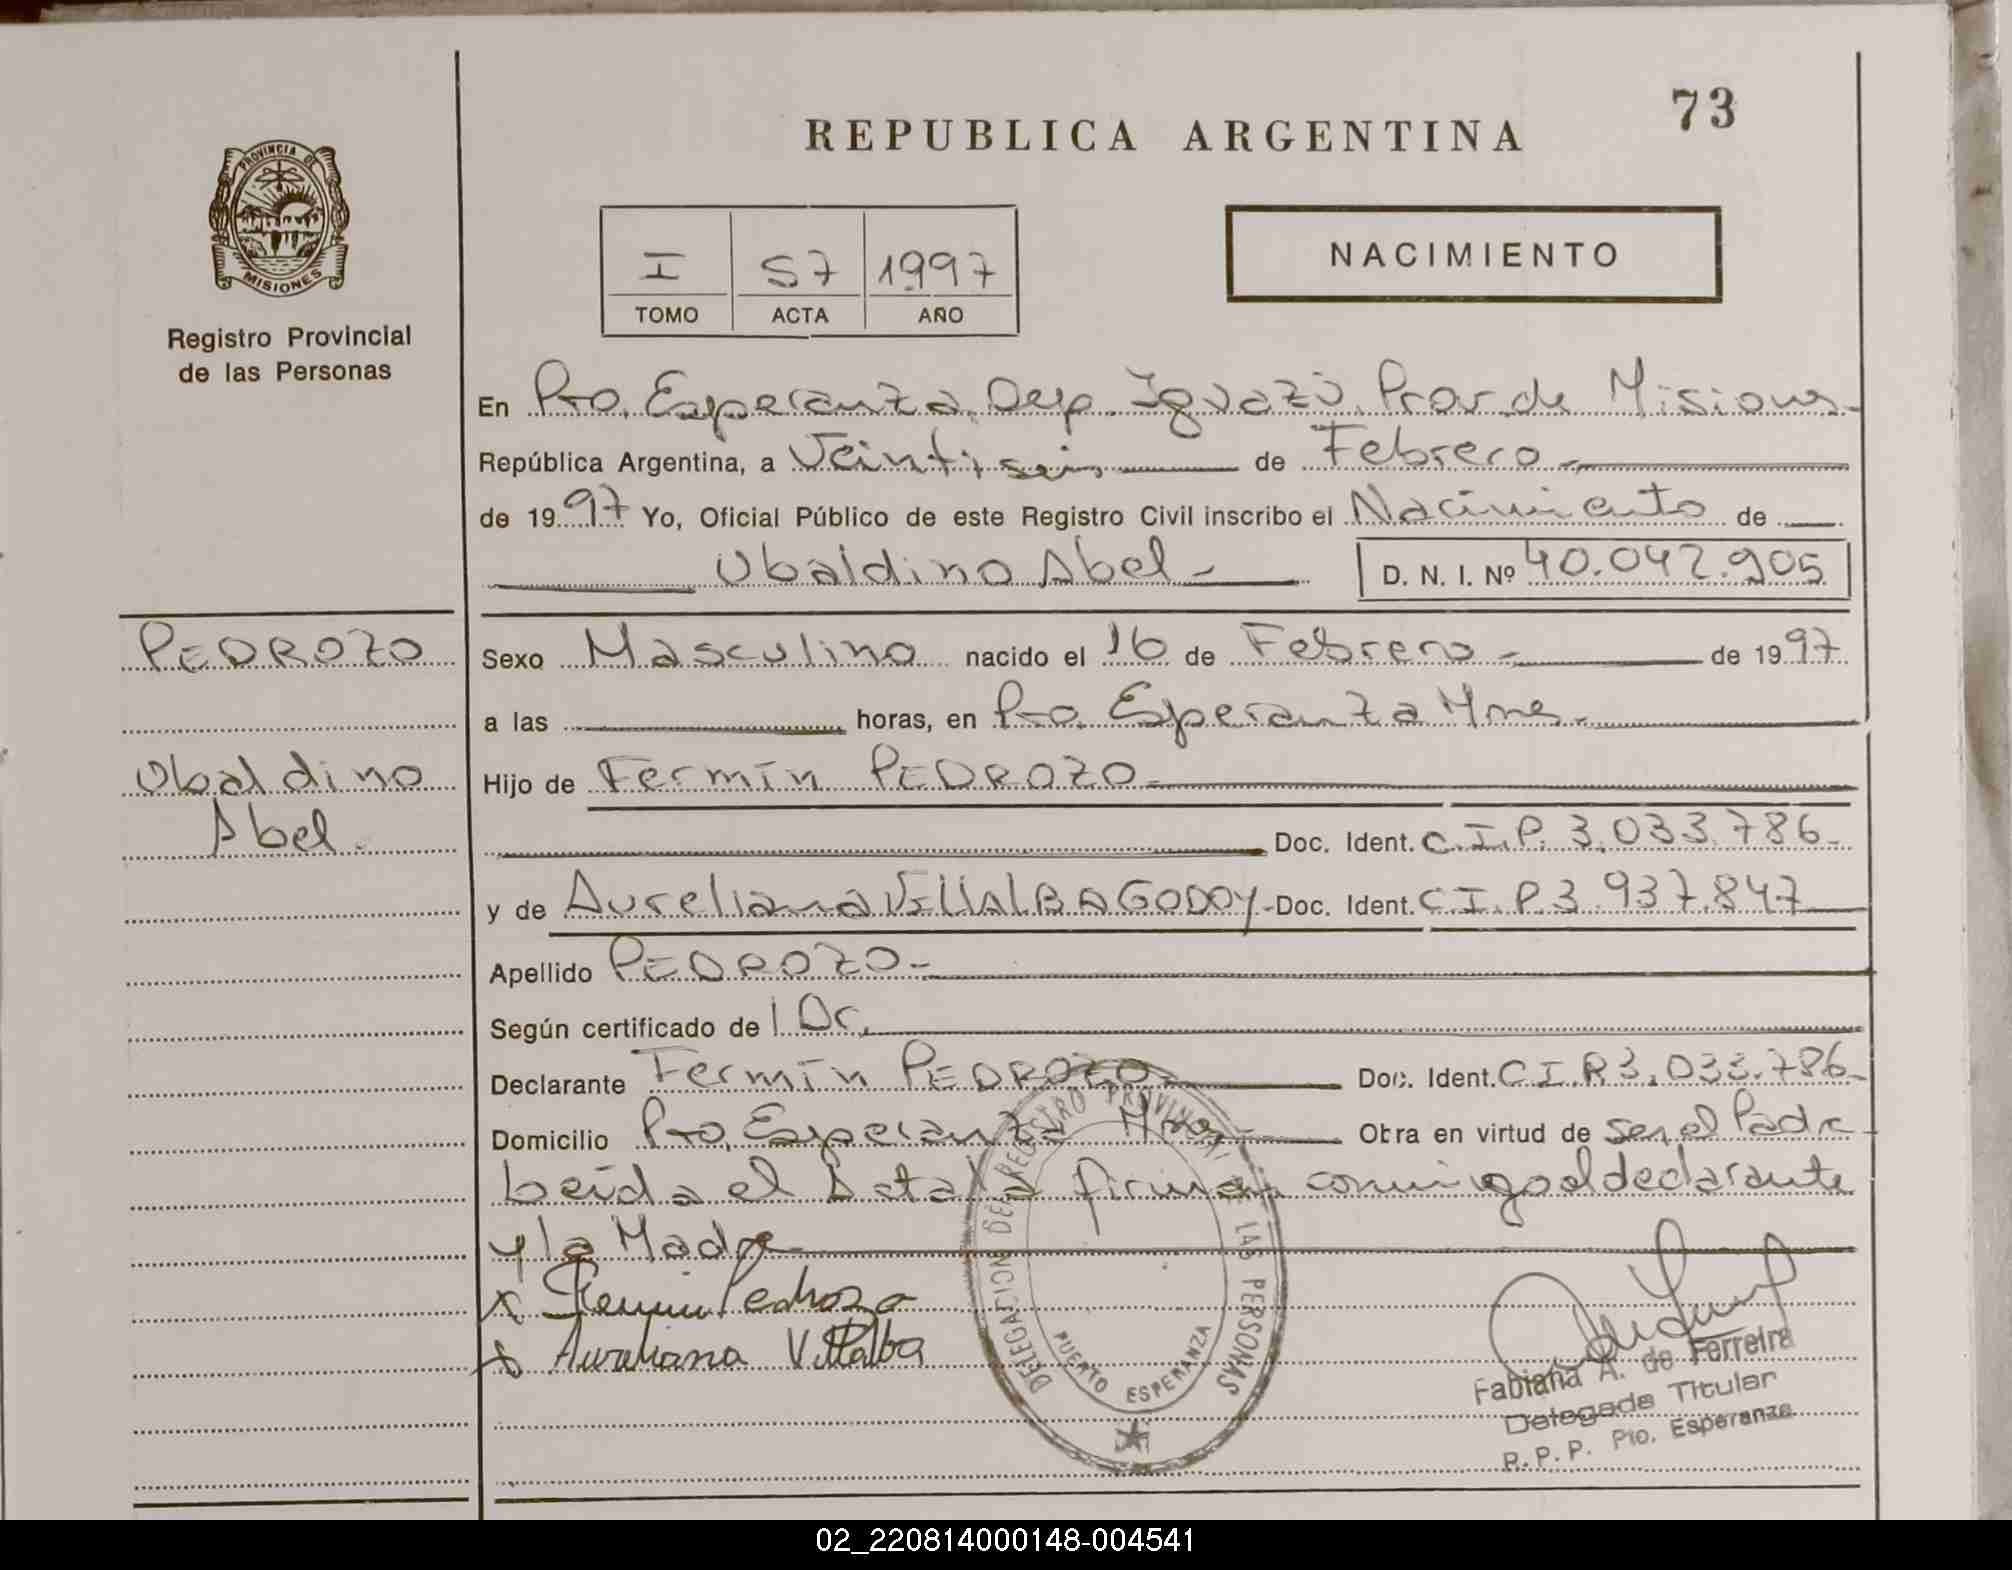 73
REPUBLICA ARGENTINA
PROVINCIA DE
MISIONES
Registro Provincial
de las Personas
I S7 1997
TOMO ACTA AÑO
NACIMIENTO
En Pto. Esperanza, Dep. Iguazú, Prov. de Misiones
República Argentina, a Veintiseis de Febrero
de 1997 Yo, Oficial Público de este Registro Civil inscribo el Nacimiento de
Ubaldino Abel D. N. I. Nº 40.042.905
PEDROZO
Ubaldino
Abel.
Sexo Masculino nacido el 16 de Febrero de 1997
a las horas, en Pto. Esperanza Mnes.
Hijo de Fermín PEDROZO
Doc. Ident. C.I.P. 3.033.786
y de Aureliana VIllAlBA GODOY Doc. Ident. C.I.P 3.937.847
Apellido PEDROZO
Según certificado de I Dc.
Declarante Fermín PEDROZO Doc. Ident. C.I.P. 3.033.786
Domicilio Pto. Esperanza Mnes. Obra en virtud de ser el Padre
Leída el Acta la firman conmigo el declarante
y la Madre
x Fermin Pedrozo
x Aureliana Villalba
DELEGACION DEL REGISTRO PROVINCIAL DE LAS PERSONAS
PUERTO ESPERANZA
Fabiana A. de Ferreira
Delegada Titular
R. P. P. Pto. Esperanza
02_220814000148-004541